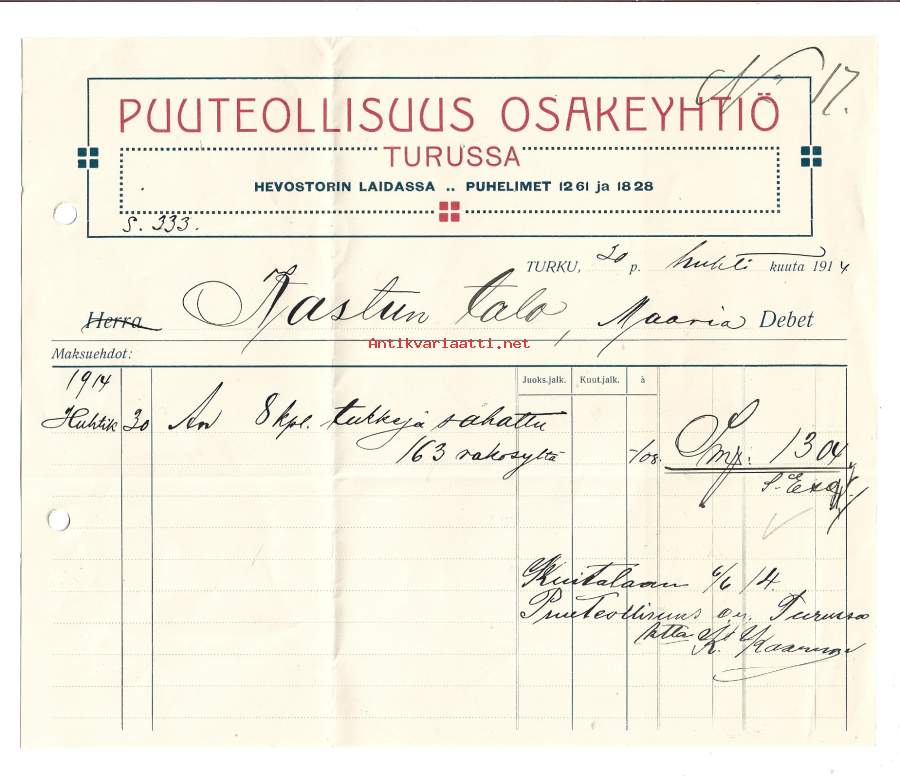 N:o 17.
PUUTEOLLISUUS OSAKEYHTIÖ
TURUSSA
HEVOSTORIN LAIDASSA .. PUHELIMET 12 61 ja 18 28
S. 333.
TURKU, 30 p. huhti kuuta 1914
Herra Kastun talo, Maaria Debet
Antikvariaatti.net
Maksuehdot:
Juoks.jalk. Kuut.jalk. à
1914
Huhtik 30 An 8 kpl. tukkeja sahattu
163 rakosyltä -/08. Smk: 1304
Kuitataan 6/6 14.
Puuteollisuus o.y. Turussa